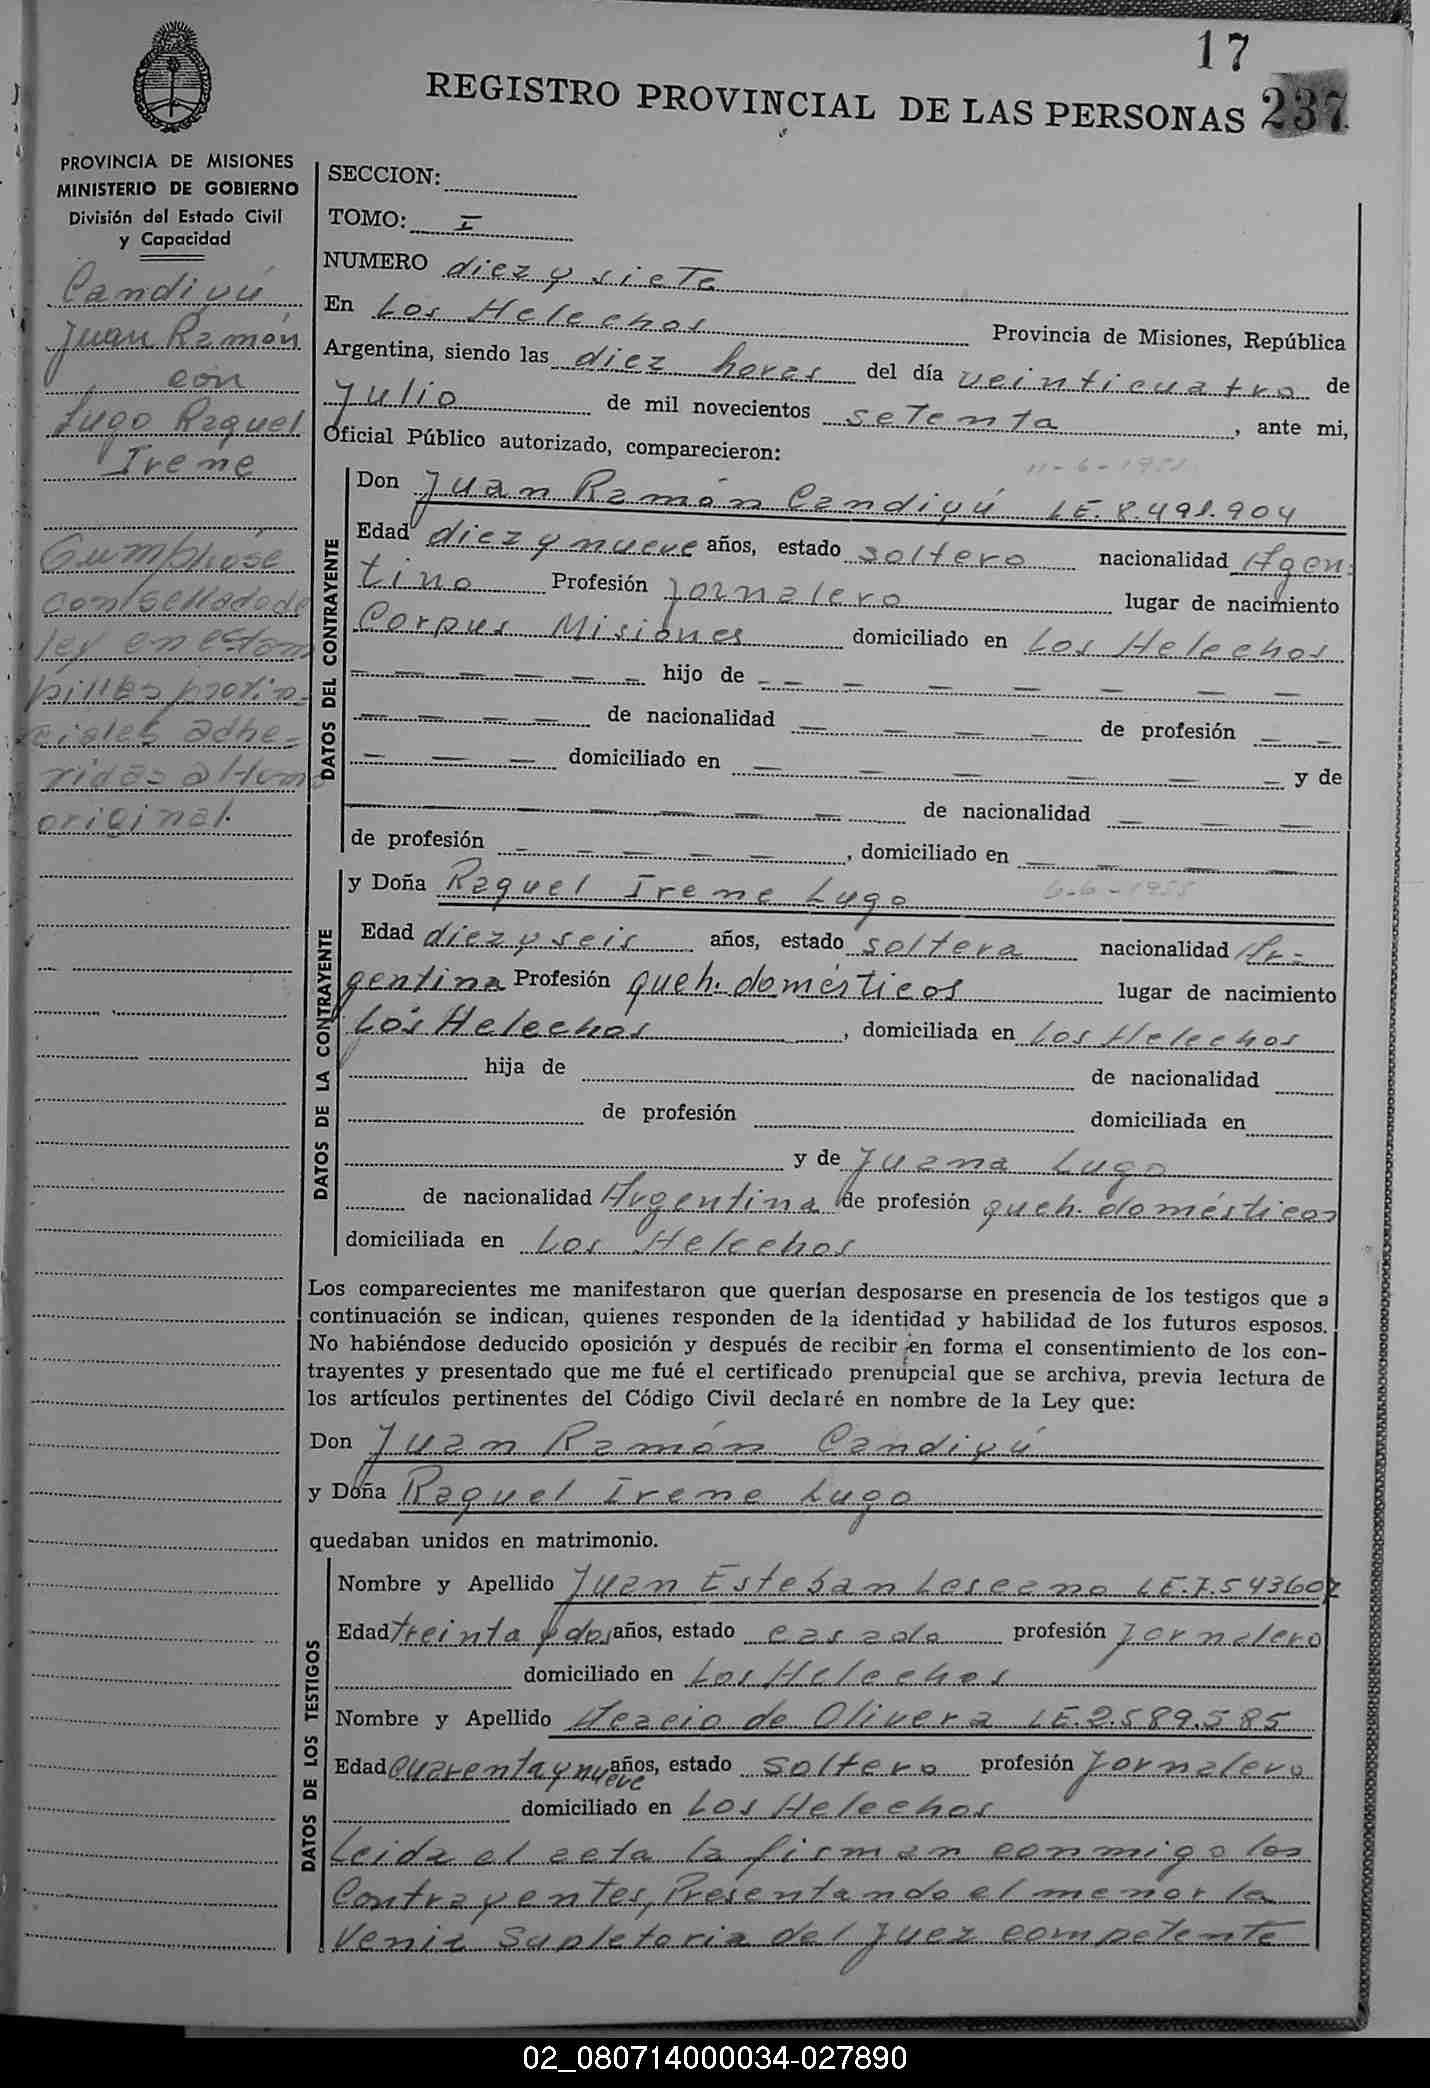 17
REGISTRO PROVINCIAL DE LAS PERSONAS 237
PROVINCIA DE MISIONES
MINISTERIO DE GOBIERNO
División del Estado Civil
y Capacidad
Candiyú
Juan Ramón
con
Lugo Raquel
Irene
Cumplióse
con sellado de
ley en estam
pillas provin-
ciales adhe-
ridas al
original.
SECCION:
TOMO: I
NUMERO diez y siete
En Los Helechos Provincia de Misiones, República
Argentina, siendo las diez horas del día veinticuatro de
Julio de mil novecientos setenta, ante mi,
Oficial Público autorizado, comparecieron:
11-6-1951
DATOS DEL CONTRAYENTE
Don Juan Ramón Candiyú LE. 8.491.904
Edad diez y nueve años, estado soltero nacionalidad Agen-
tino Profesión Jornalero lugar de nacimiento
Corpus Misiones domiciliado en Los Helechos
hijo de
de nacionalidad de profesión
domiciliado en y de
de nacionalidad
de profesión , domiciliado en
DATOS DE LA CONTRAYENTE
y Doña Raquel Irene Lugo 6-6-1953
Edad diez y seis años, estado soltera nacionalidad Ar-
gentina Profesión queh. domésticos lugar de nacimiento
Los Helechos, domiciliada en Los Helechos
hija de de nacionalidad
de profesión domiciliada en
y de Juana Lugo
de nacionalidad Argentina de profesión queh. domésticos
domiciliada en Los Helechos
Los comparecientes me manifestaron que querían desposarse en presencia de los testigos que a
continuación se indican, quienes responden de la identidad y habilidad de los futuros esposos.
No habiéndose deducido oposición y después de recibir en forma el consentimiento de los con-
trayentes y presentado que me fué el certificado prenupcial que se archiva, previa lectura de
los artículos pertinentes del Código Civil declaré en nombre de la Ley que:
Don Juan Ramón Candiyú
y Doña Raquel Irene Lugo
quedaban unidos en matrimonio.
DATOS DE LOS TESTIGOS
Nombre y Apellido Juan Esteban Lescano LE. 7.543602
Edad treinta y dos años, estado casado profesión Jornalero
domiciliado en Los Helechos
Nombre y Apellido de Olivera LE. 2.589.585
Edad cuarenta y nueve años, estado soltero profesión Jornalero
domiciliado en Los Helechos
Leida el acta la firman conmigo los
Contrayentes, Presentando el menor la
Venia Supletoria del Juez competente
02_080714000034-027890